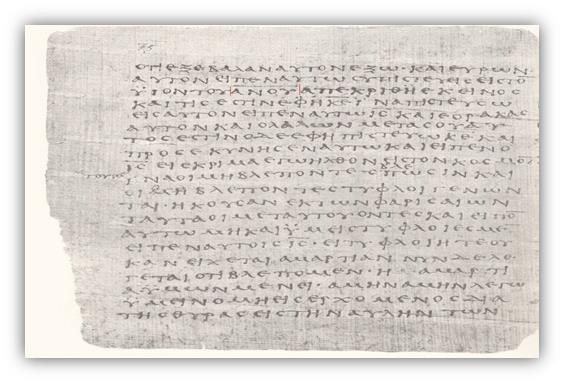 ΟΤΙ ΕΞΕΒΑΛΑΝ ΑΥΤΟΝ ΕΞΩ· ΚΑΙ ΕΥΡΩΝ
ΑΥΤΟΝ ΕΙΠΕΝ ΑΥΤΩ ϹΥ ΠΙϹΤΕΥΕΙϹ ΕΙϹ ΤΟ
ΫΙΟΝ ΤΟΥ ΑΝΟΥ ΑΠΕΚΡΙΘΗ ΕΚΕΙΝΟϹ
ΚΑΙ ΤΙϹ ΕϹΤΙΝ ΕΦΗ ΚΕ ΙΝΑ ΠΙϹΤΕΥϹΩ
ΕΙϹ ΑΥΤΟΝ ΕΙΠΕΝ ΑΥΤΩ ΙϹ ΚΑΙ ΕΟΡΑΚΑϹ
ΑΥΤΟΝ ΚΑΙ Ο ΛΑΛΩΝ ΜΕΤΑ ϹΟΥ ΑΥ
ΤΟϹ ΕϹΤΙΝ Ο ΔΕ ΕΦΗ ΠΙϹΤΕΥΩ ΚΕ ΚΑΙ
ΠΡΟϹΕΚΥΝΗϹΕΝ ΑΥΤΩ ΚΑΙ ΕΙΠΕΝ Ο
ΙϹ ΕΙϹ ΚΡΙΜΑ ΕΓΩ ΗΛΘΟΝ ΕΙϹ ΤΟΝ ΚΟϹΜΟ
ΙΝΑ ΟΙ ΜΗ ΒΛΕΠΟΝΤΕϹ ΒΛΕΠΩϹΙΝ ΚΑΙ
ΟΙ ΒΛΕΠΟΝΤΕϹ ΤΥΦΛΟΙ ΓΕΝΩΝ
ΤΑΙ· ΗΚΟΥϹΑΝ ΕΚ ΤΩΝ ΦΑΡΙϹΑΙΩΝ
ΤΑΥΤΑ ΟΙ ΜΕΤ ΑΥΤΟΥ ΟΝΤΕϹ ΚΑΙ ΕΙΠΟ
ΑΥΤΩ ΜΗ ΚΑΙ ΗΜΕΙϹ ΤΥΦΛΟΙ ΕϹΜΕ
ΕΙΠΕΝ ΑΥΤΟΙϹ ΙϹ· ΕΙ ΤΥΦΛΟΙ ΗΤΕ ΟΥ
ΚΑΝ ΕΙΧΕΤΑΙ ΑΜΑΡΤΙΑΝ ΝΥΝ ΔΕ ΛΕ
ΓΕΤΑΙ ΟΤΙ ΒΛΕΠΟΜΕΝ· Η ΑΜΑΡΤΙ
Α ΥΜΩΝ ΜΕΝΕΙ· ΑΜΗΝ ΑΜΗΝ ΛΕΓΩ
ΫΜΕΙΝ Ο ΜΗ ΕΙϹΕΡΧΟΜΕΝΟϹ ΔΙΑ
ΤΗϹ ΘΥΡΑϹ ΕΙϹ ΤΗΝ ΑΥΛΗΝ ΤΩΝ